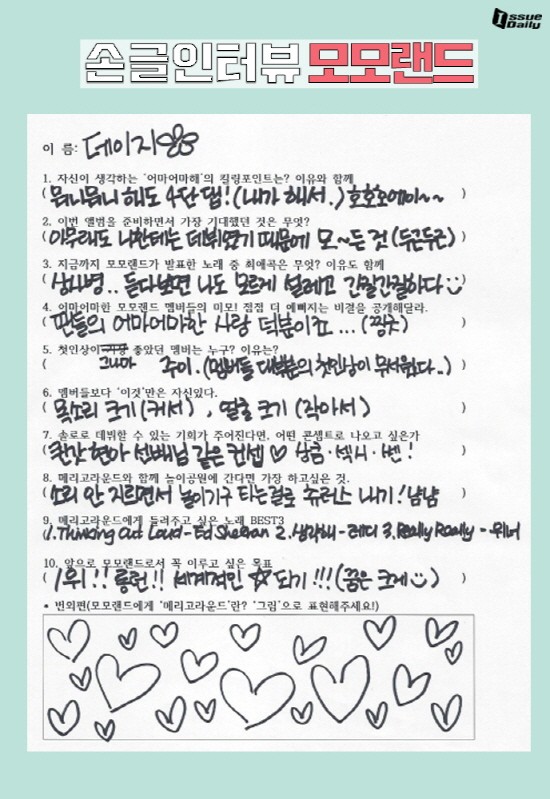 Issue
Daily
손글인터뷰 모모랜드
이 름: 데이지
1. 자신이 생각하는 '어마어마해'의 킬링포인트는? 이유와 함께
( 뭐니뭐니 해도 4단 댑! (내가 해서.) 호호호에이~~ )
2. 이번 앨범을 준비하면서 가장 기대했던 것은 무엇?
( 아무래도 나한테는 데뷔였기 때문에 모~든 것 (두근두근) )
3. 지금까지 모모랜드가 발표한 노래 중 최애곡은 무엇? 이유도 함께
( 상사병.. 듣다보면 나도 모르게 설레고 간질간질하다 )
4. 어마어마한 모모랜드 멤버들의 미모! 점점 더 예뻐지는 비결을 공개해달라.
( 팬들의 어마어마한 사랑 덕분이죠... (찡긋) )
5. 첫인상이 가장 좋았던 멤버는 누구? 이유는?
( 그나마 주이. (멤버들 대부분의 첫인상이 무서웠다..) )
6. 멤버들보다 '이것'만은 자신있다.
( 목소리 크기 (커서), 얼굴 크기 (작아서) )
7. 솔로로 데뷔할 수 있는 기회가 주어진다면, 어떤 콘셉트로 나오고 싶은가
( 현아 선배님 같은 컨셉 ♡ 상큼·섹시·뻔! )
8. 메리고라운드와 함께 놀이공원에 간다면 가장 하고싶은 것.
( 소리 안 지르면서 놀이기구 타는걸로 츄러스 내기! 냠냠 )
9. 메리고라운드에게 들려주고 싶은 노래 BEST3
( 1. Thinking Out Loud - Ed Sheeran 2. 생각해 - 레디 3. Really Really - 위너
10. 앞으로 모모랜드로서 꼭 이루고 싶은 목표
( 1위!! 롱런!! 세계적인 ☆ 되기!!! (꿈은 크게) )
* 번외편(모모랜드에게 '메리고라운드'란? '그림'으로 표현해주세요!)